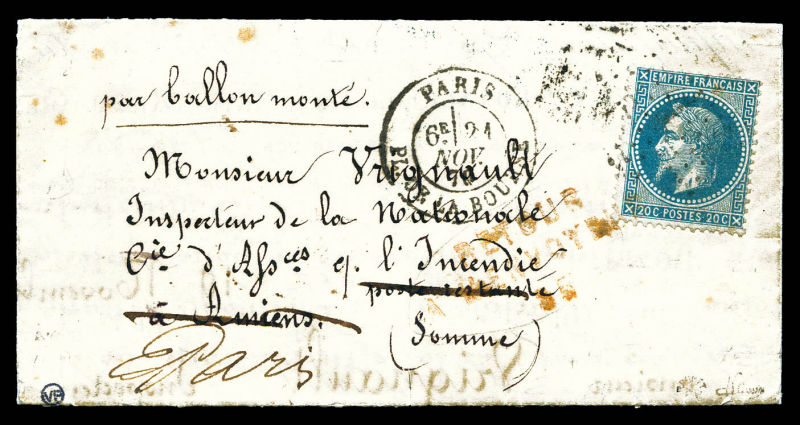 par ballon monté.
PARIS
6E 24
NOV.
70
PL. DE LA BOURSE
EMPIRE FRANÇAIS
20 C POSTES 20 C
Monsieur Vrignault
Inspecteur de la Nationale
Cie d'Assces q. l'Incendie
poste restante
à Amiens.
(Somme)
Paris
RETOUR
VP